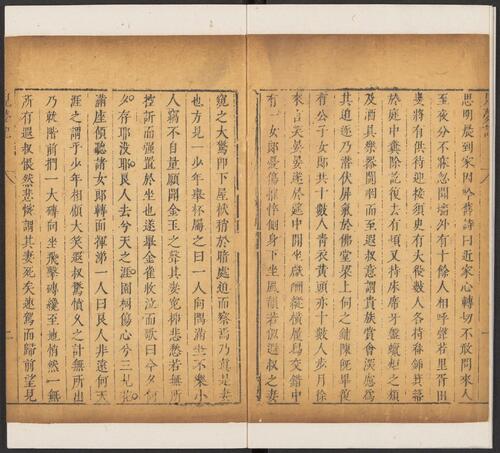 思明晨到家因吟舊詩曰近家心轉切不敢問來人
至夜分不寐忽聞墻外有十餘人相呼聲若里胥田
叟將有供待迎接須臾有夫役數人各持畚鍤箕箒
於庭中糞除訖復去有頃又持床席牙盤蠟炬之類
及酒具樂器闐咽而至遐叔意謂貴族賞會深慮為
其迫逐乃潛伏屏氣於佛堂梁上伺之鋪陳既畢復
有公子女郎共十數人青衣黃頭亦十數人步月徐
來言笑晏晏遂於庭中間坐獻酬縱橫履舄交錯中
有一女郎憂傷摧悴側身下坐風韻若似遐叔之妻
窺之大驚即下屋袱稍於暗處迫而察焉乃真是妻
也方見一少年舉杯屬之曰一人向隅滿坐不樂小
人竊不自量願聞金玉之聲其妻冤抑悲愁若無所
控訴而强置於坐也遂舉金雀收泣而歌曰今夕何
夕存耶沒耶良人去兮天之涯園樹傷心兮三見花
滿座傾聽諸女郎轉面揮涕一人曰良人非遠何天
涯之謂乎少年相顧大笑遐叔驚憤久之計無所出
乃就階前捫一大磚向坐飛擊磚纔至地悄然一無
所有遐叔悵然悲惋謂其妻死矣速駕而歸前望見